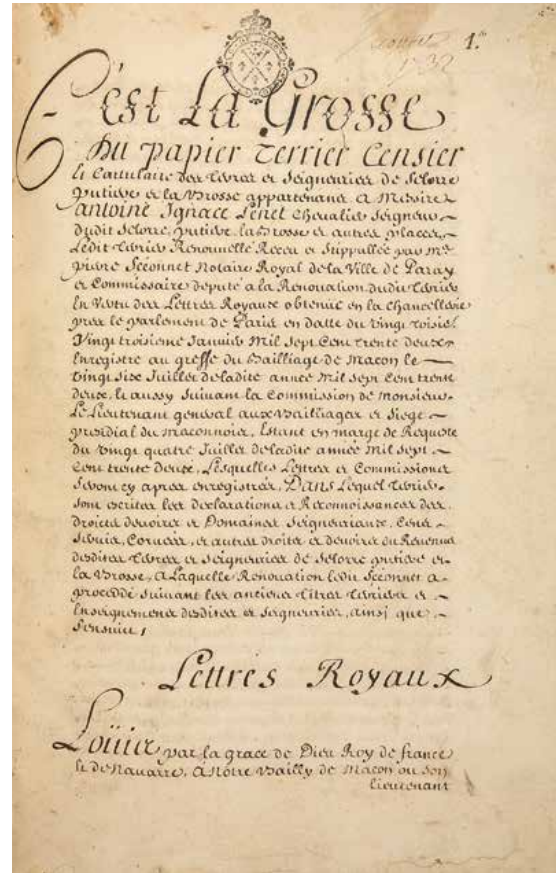 1.
C'est La Grosse
Du papier Terrier Censier
et Cartulaire des terres et Seigneuries de Selorre
putiere et la Brosse appartenant a Messire
antoine Ignace Lenet Chevalier Seigneur
dudit Selorre, putiere, la Brosse et autres places,
Ledit terrier Renouvellé Receu et Stippullée par Me
pierre Seconnet Notaire Royal de la Ville de Paray
et Commissaire deputé a la Renovation dudit terrier
En Vertu des Lettres Royaux obtenue en la chancellerie
prez le parlement de Paris en datte du
Vingt troisieme Janvier Mil Sept Cent trente deux
Enregistré au greffe du Bailliage de Macon le
Vingt Six Juillet de ladite année Mil Sept Cent trente
deux, et aussy suivant la Commission de Monsieur
Le Lieutenant general aux Bailliages et Siege
presidial du maconnois, Estant en marge de Requeste
du Vingt quatre Juillet de ladite année Mil Sept
Cent trente deux, Lesquelles Lettres et Commissions
Seront cy apres enregistrées, Dans Lequel terrier
sont escrites les declarations et Reconnoissances des
droits devoirs et Domaines Seigneuriaux, Cens
Servis, Corvées, et autres droits et devoirs du Revenus
desdites terres et Seigneuries de Selorre putiere et
la Brosse, a Laquelle Renovation ledit Seconnet a
procedé suivant les anciens titres terriers et
Enseignemens desdites et Seigneuries, ainsi que
S'ensuit
Lettres Royaux
Loüis par la grace de Dieu Roy de france
et de Navarre, a Notre Bailly de Macon ou son
lieutenant